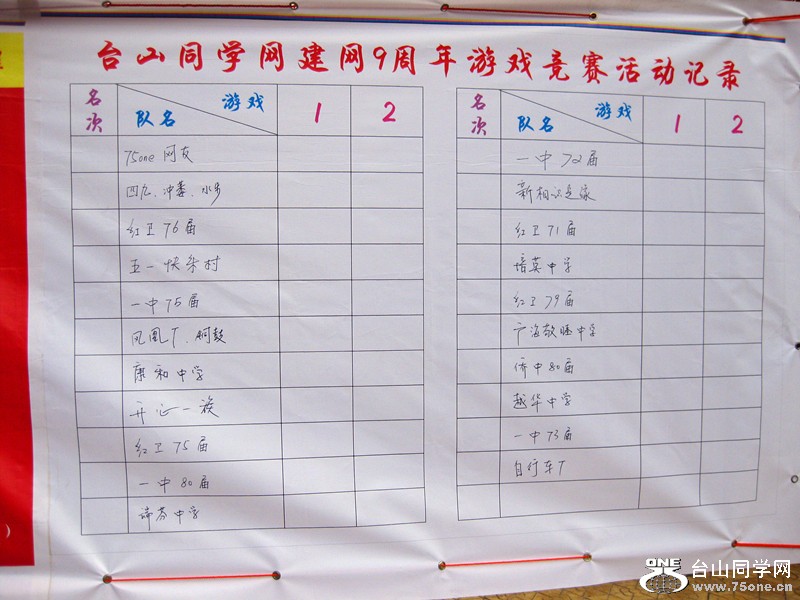 台山同学网建网9周年游戏竞赛活动记录
名次 游戏 队名 1 2
75one 网友
四九、冲蒌、水步
红卫76届
五一快乐村
一中75届
凤凰T、铜鼓
康和中学
开心一族
红卫75届
一中80届
端芬中学
名次 游戏 队名 1 2
一中72届
新相识是缘
红卫71届
培英中学
红卫79届
宁海敬睡中学
侨中80届
越华中学
一中73届
自行车T
ONE 75 台山同学网
www.75one.cn